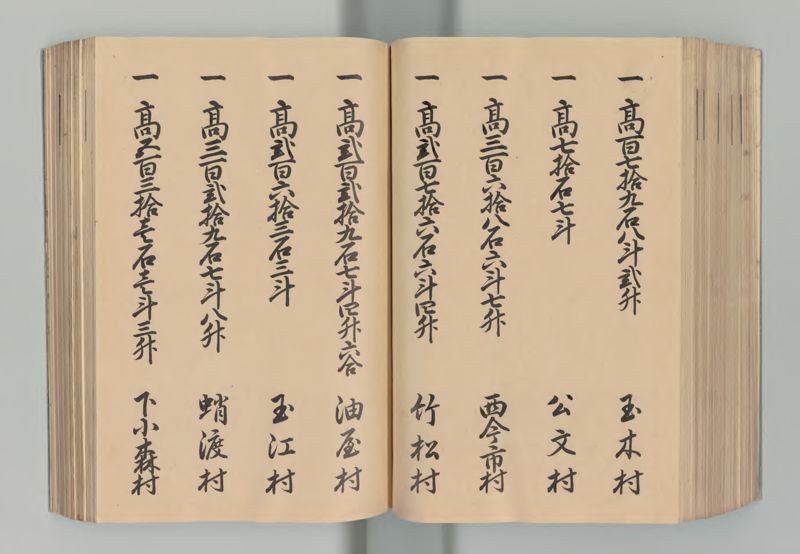 一 高百七拾九石八斗弐升 玉木村
一 高七拾石七斗 公文村
一 高三百六拾八石六斗七升 西今市村
一 高弐百七拾六石六斗四升 竹松村
一 高弐百弐拾九石七斗四升六合 油屋村
一 高弐百六拾三石三斗 玉江村
一 高三百弐拾九石七斗八升 蛸渡村
一 高五百三拾壱石壱斗三升 下小森村